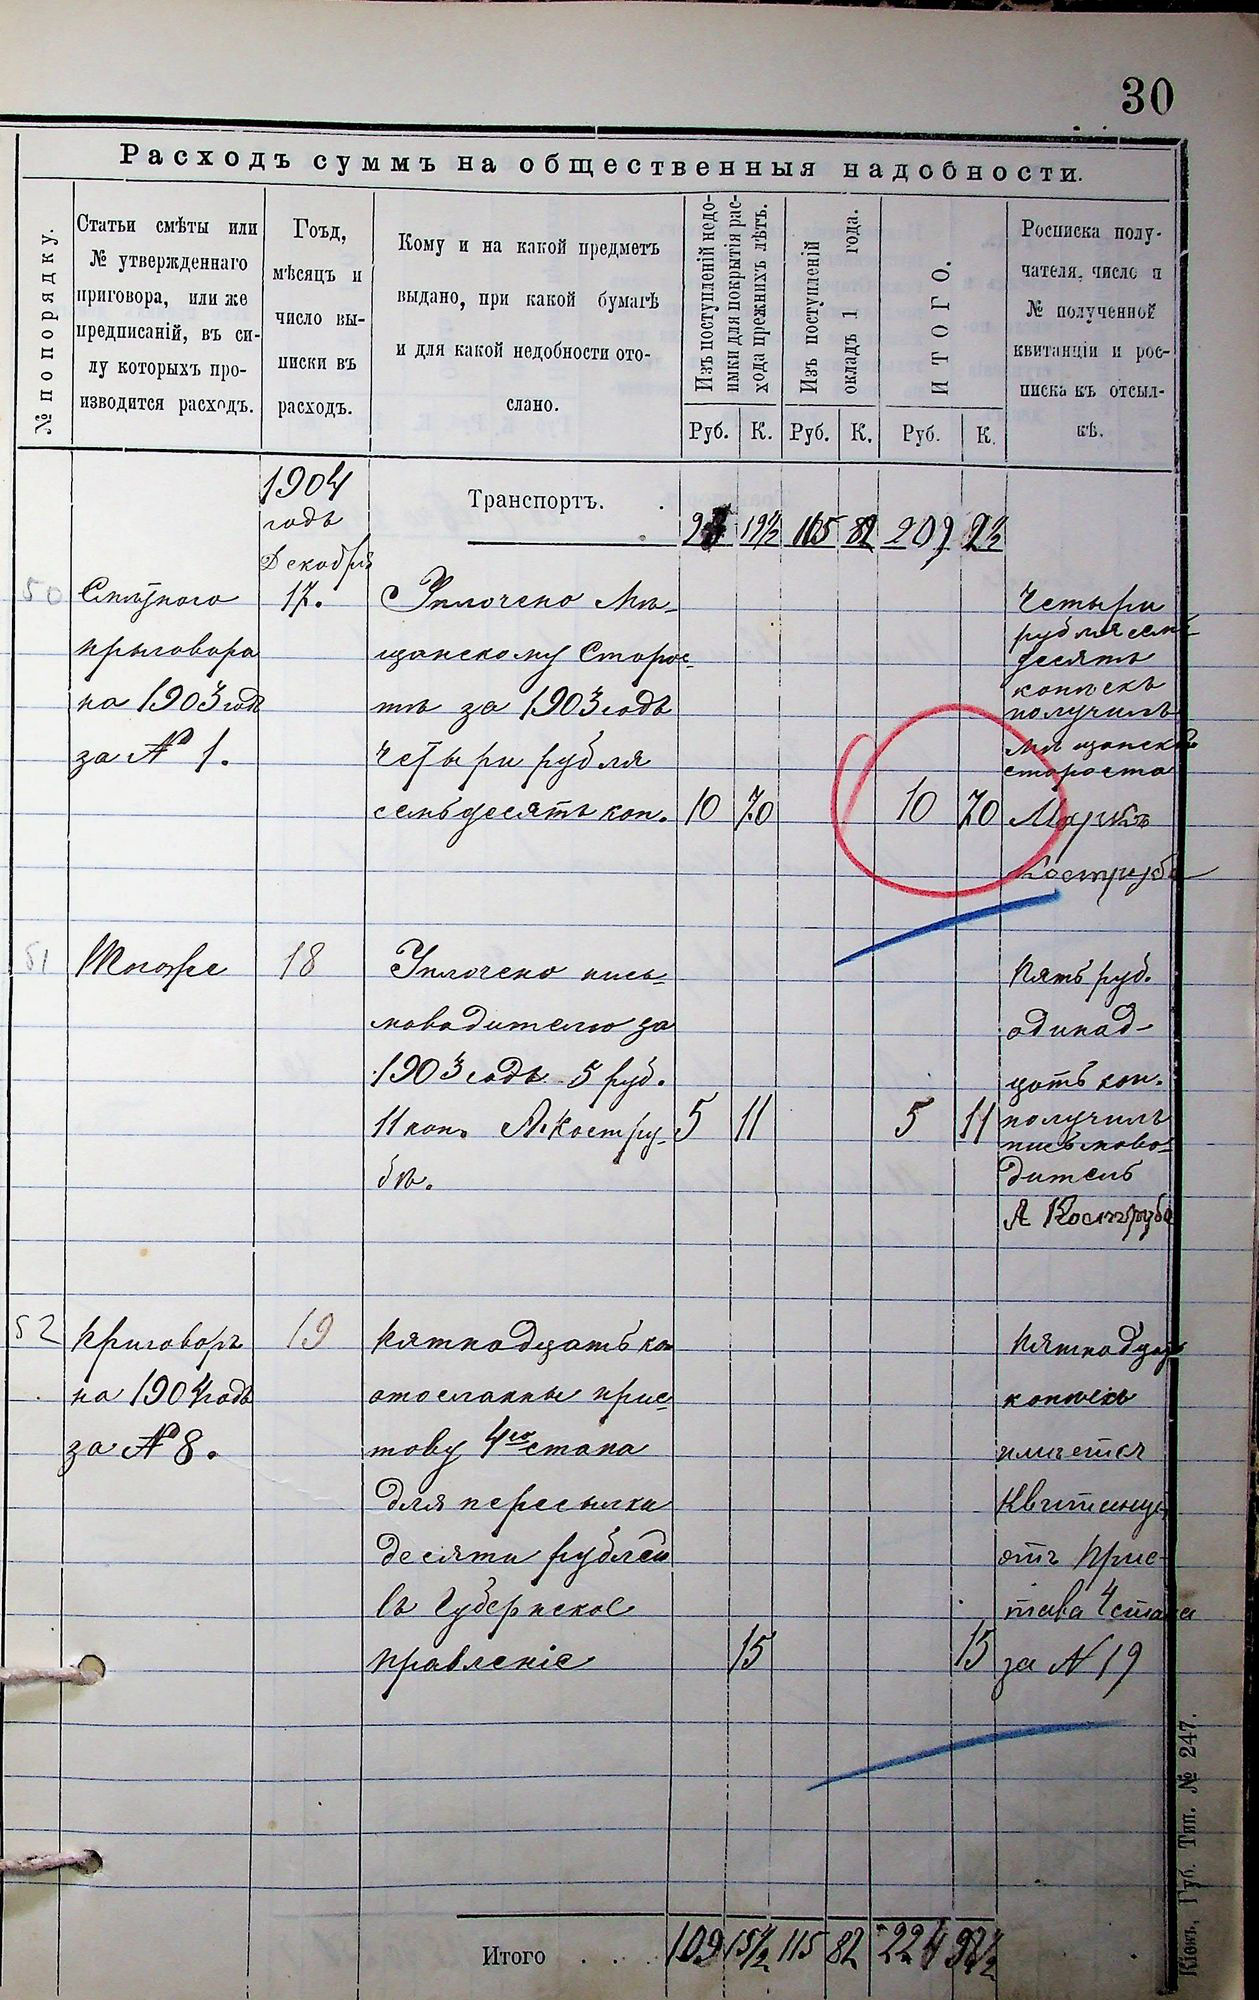 30
Расходъ суммъ на общественныя надобности.
№ по порядку.
Статьи смѣты или
№ утвержденнаго
приговора, или же
предписаній, въ си-
лу которыхъ про-
изводится расходъ.
Гоъд,
мѣсяцъ и
число вы-
писки въ
расходъ.
Кому и на какой предметъ
выдано, при какой бумагѣ
и для какой недобности ото-
слано.
Изъ поступленій недо-
имки для покрытія рас-
хода прежнихъ лѣтъ.
Изъ поступленій
окладъ 1 года.
ИТОГО.
Росписка полу-
чателя, число и
№ полученной
квитанціи и рос-
писка къ отсыл-
кѣ.
Руб. К. Руб. К. Руб. К.
1904
годъ
Декабря
Транспортъ.
19½ 82 209
50 Смѣтного 17. Уплочено Мѣ-
приговора щанскому Старос-
на 1903 годъ тѣ за 1903 годъ
за № 1. четыри рубля
семьдесятъ коп. 10 70 10 70
Четыри
рубля семь
десятъ
копѣекъ
получилъ
мѣщанскій
староста
Маркъ
Коструба
51 Тогоже 18 Уплочено пись-
моводителю за
1903 годъ 5 руб.
11 коп. А. Костру- 5 11 5 11
бѣ.
Пять руб.
одинад-
цать коп.
получилъ
письмово-
дитель
А Коструба
52 Приговоръ 19 Пятнадцать ко
на 1904 годъ отосланны прис-
за № 8. тову 4го стана
для пересылки
десяти рублей
въ Губернское
правленіе 15 15
Пятнадцать
копѣекъ
имѣется
Квитанція
отъ Прис-
тава 4 стана
за N 19
Итого 109 15½ 115 82 224 97½
Кіевъ, Губ. Тип. № 247.